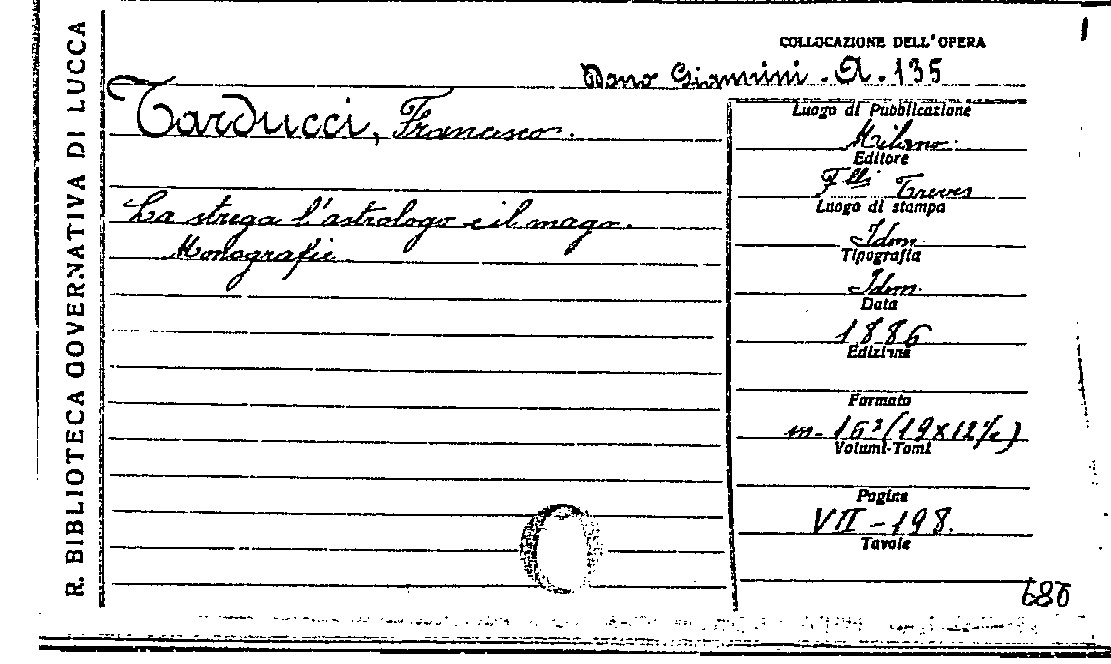 R. BIBLIOTECA GOVERNATIVA DI LUCCA
COLLOCAZIONE DELL'OPERA
Dono Giannini. A. 135
Tarducci, Francesco.
La strega l'astrologo e il mago.
Monografie
Luogo di Pubblicazione
Milano.
Editore
F.lli Treves
Luogo di stampa
Idem
Tipografia
Idem.
Data
1886
Edizione
Formato
in-16° (19x12½)
Volumi-Tomi
Pagine
VII-198.
Tavole